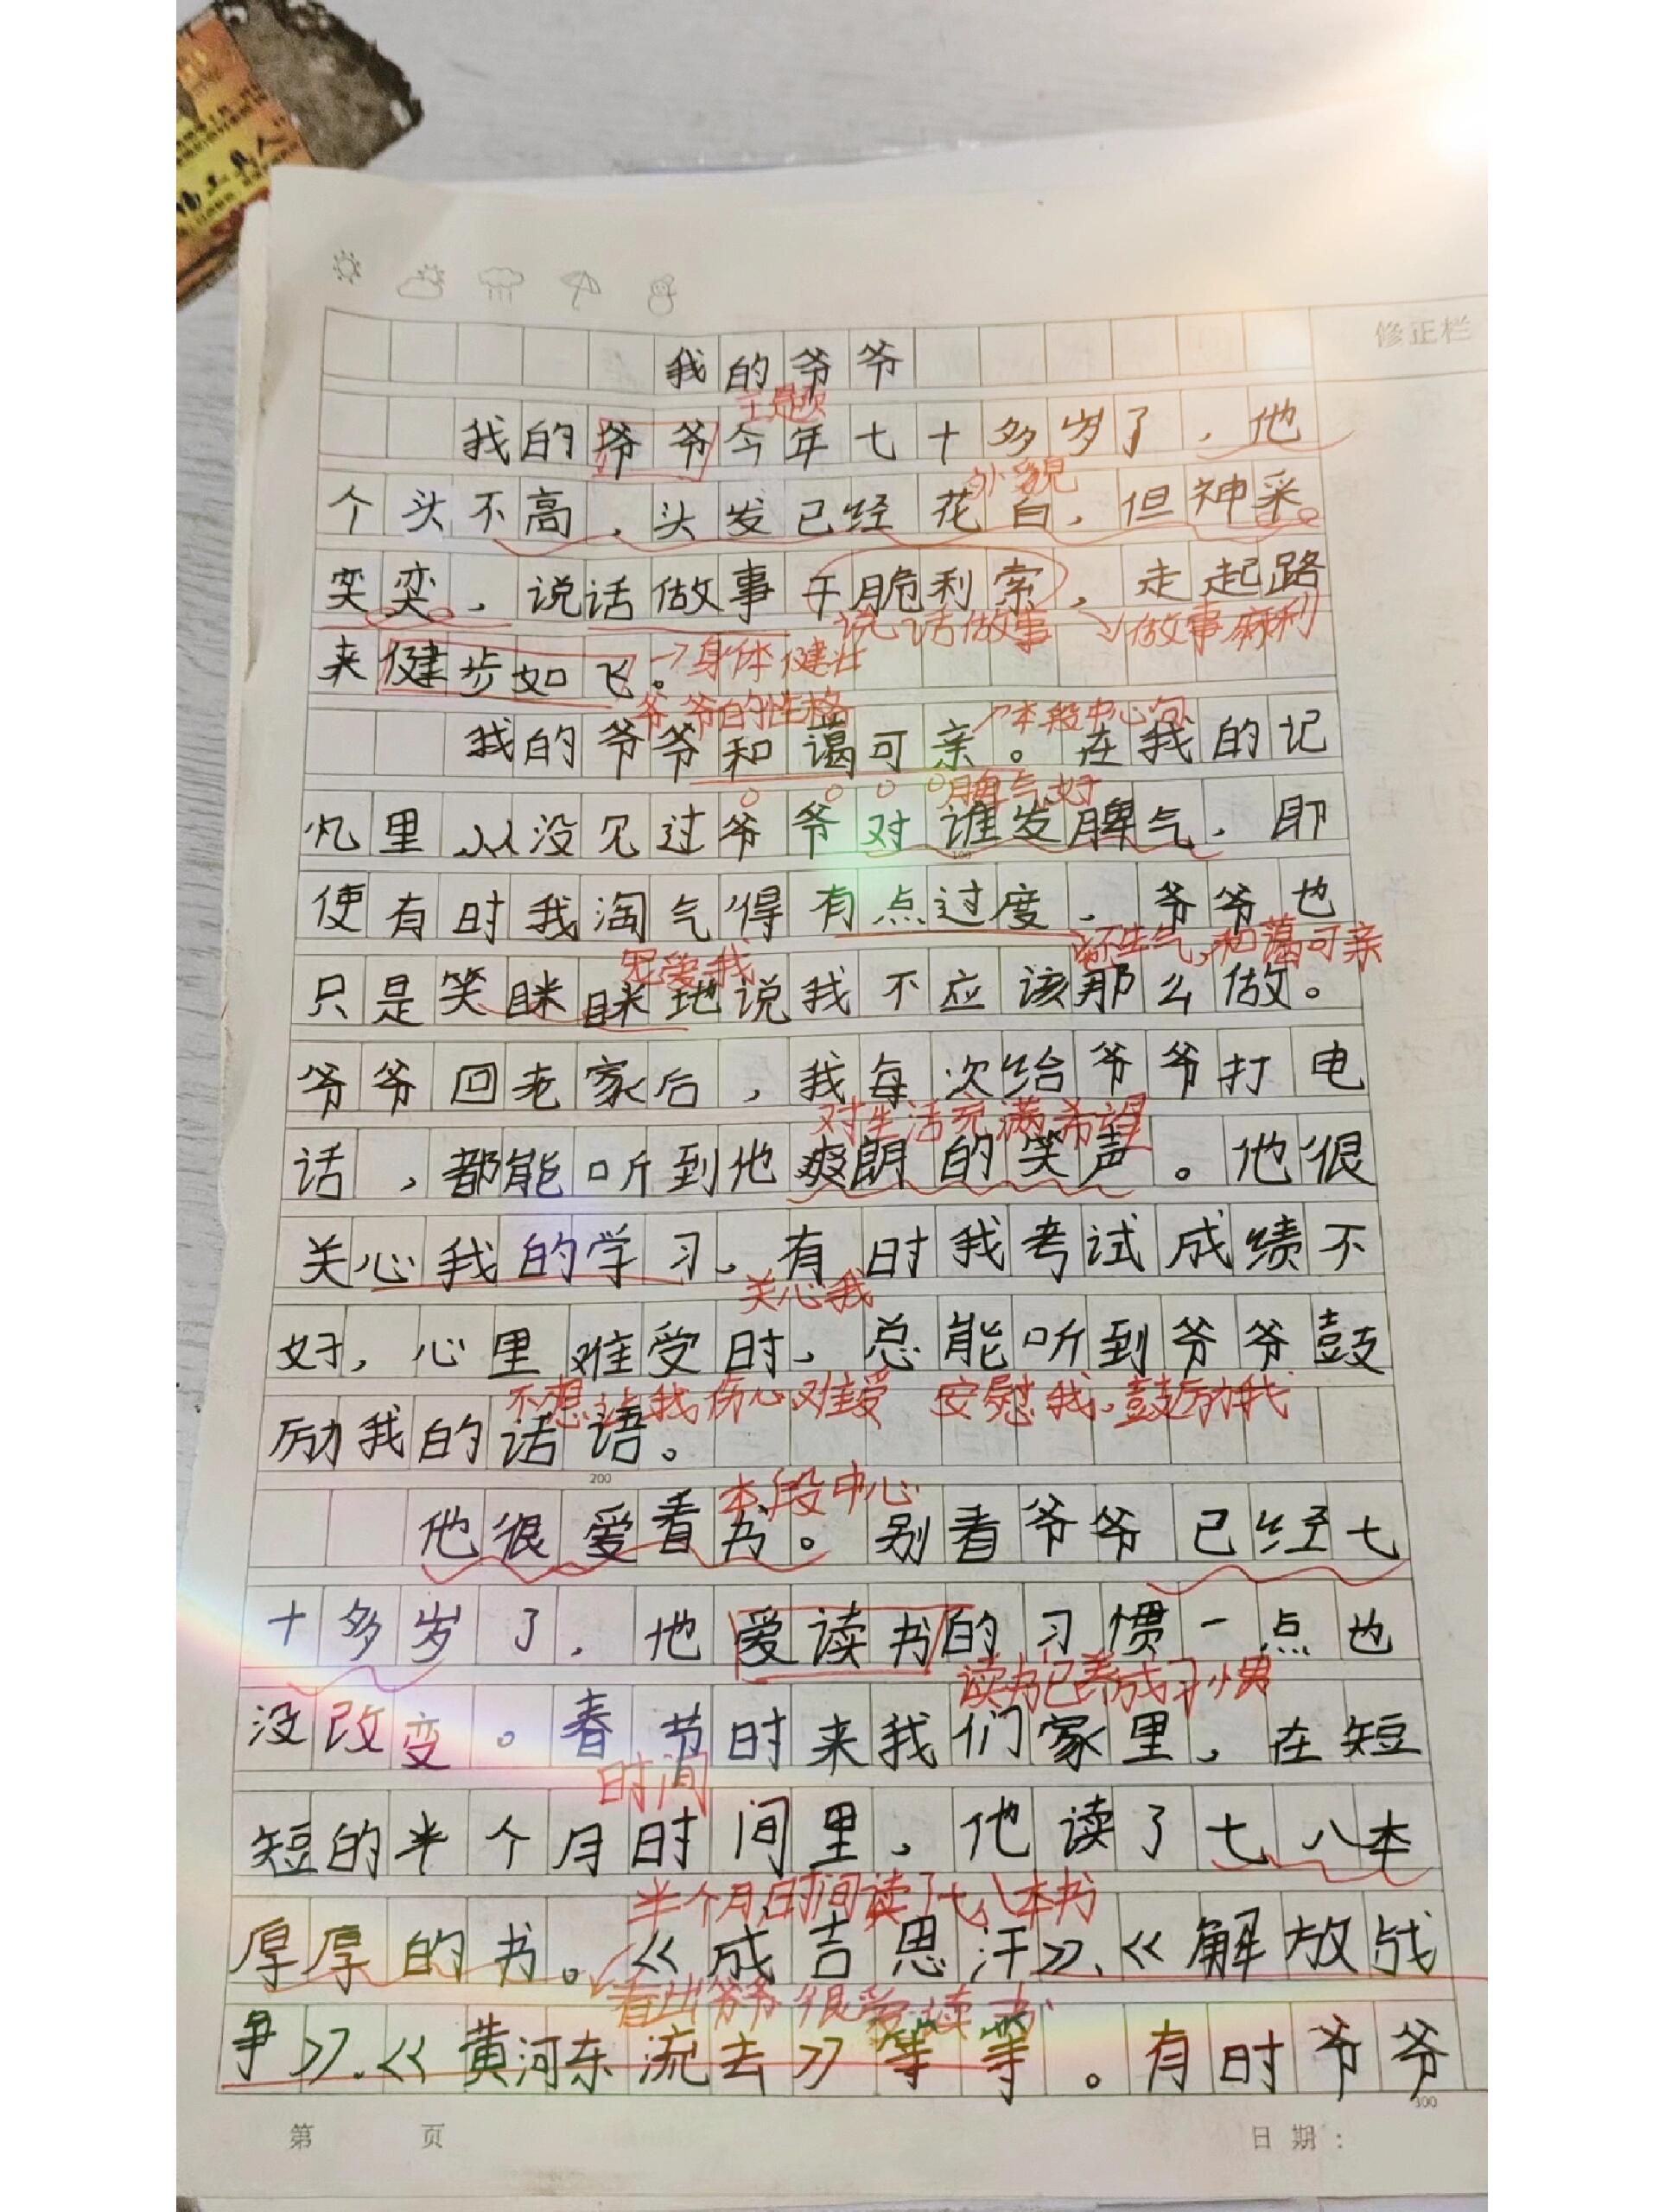 修正栏
我的爷爷
主题
我的爷爷今年七十多岁了，他
外貌
个头不高，头发已经花白，但神采
奕奕，说话做事干脆利索，走起路
说话做事
做事麻利
来健步如飞。
→身体健壮
爷爷的性格
本段中心句
我的爷爷和蔼可亲。在我的记
脾气好
忆里从没见过爷爷对谁发脾气，即
使有时我淘气得有点过度，爷爷也
不生气，和蔼可亲
宠爱我
只是笑眯眯地说我不应该那么做。
爷爷回老家后，我每次给爷爷打电
对生活充满希望
话，都能听到他爽朗的笑声。他很
关心我的学习，有时我考试成绩不
关心我
好，心里难受时，总能听到爷爷鼓
不想让我伤心难受 安慰我，鼓励我
励我的话语。
200
本段中心
他很爱看书。别看爷爷已经七
十多岁了，他爱读书的习惯一点也
读书已养成习惯
没改变。春节时来我们家里，在短
时间
短的半个月时间里，他读了七八本
半个月时间读了七八本书
厚厚的书。《成吉思汗》、《解放战
看出爷爷很爱读书
争》、《黄河东流去》等等。有时爷爷
300
第 页
日期：